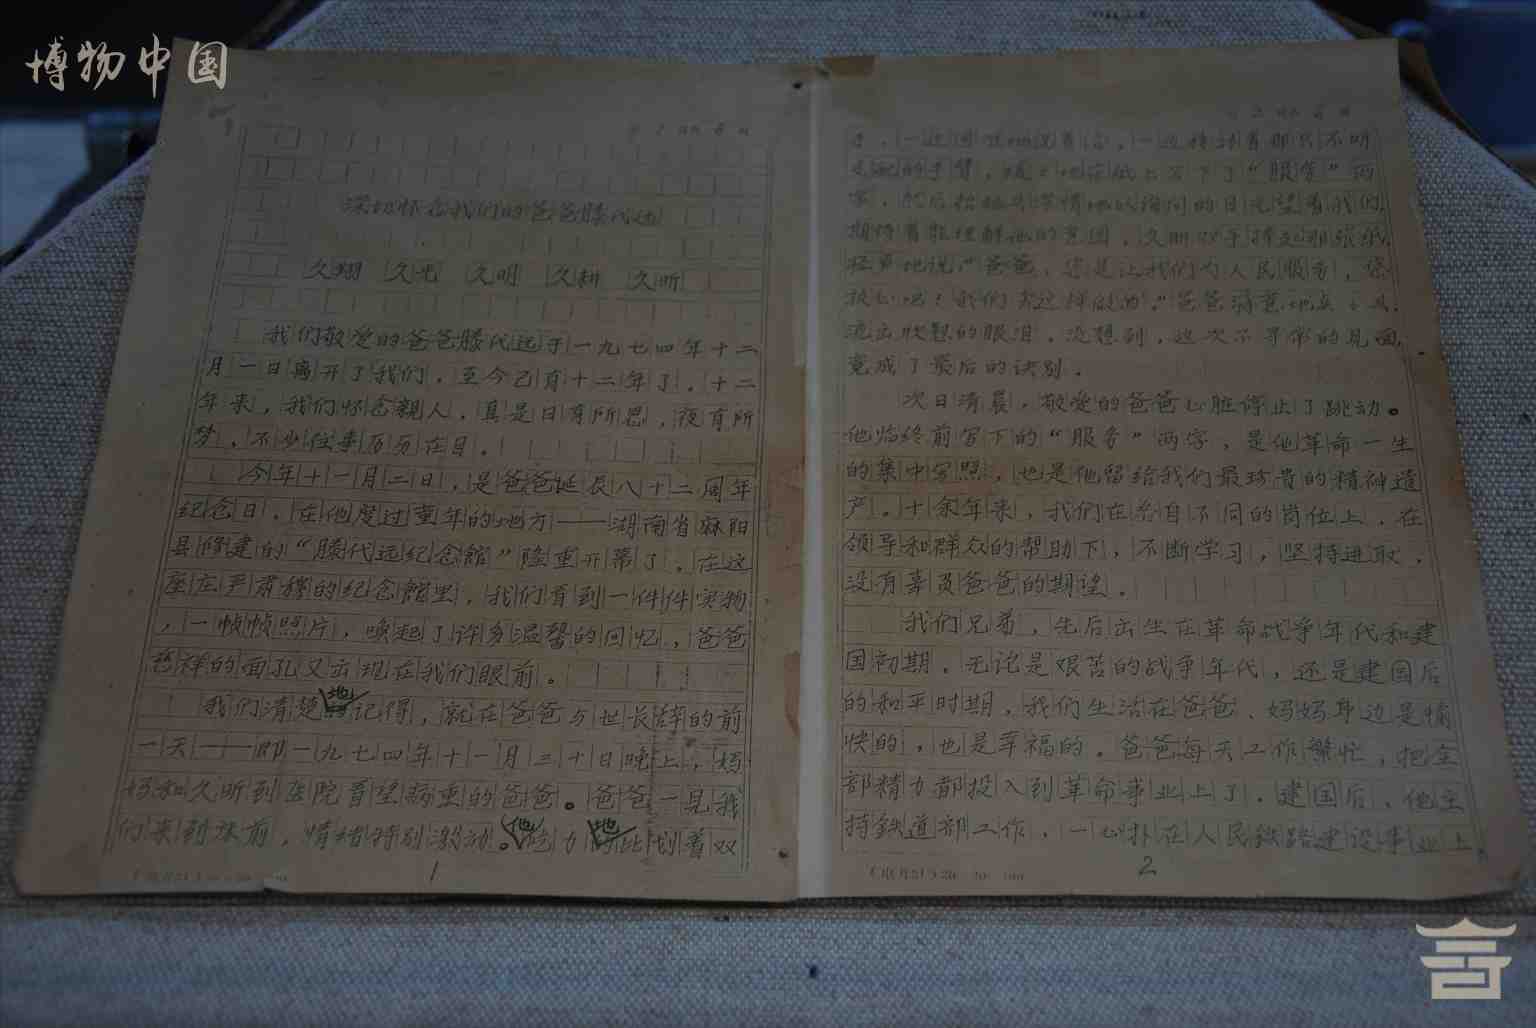 博物中国
深切怀念我们的爸爸滕代远
久翔 久光 久明 久耕 久昕
我们敬爱的爸爸滕代远于一九七四年十二
月一日离开了我们，至今已有十二年了。十二
年来，我们怀念亲人，真是日有所思，夜有所
梦，不少往事历历在目。
今年十一月二日，是爸爸诞辰八十二周年
纪念日，在他度过童年的地方——湖南省麻阳
县修建的“滕代远纪念館”隆重开幕了。在这
座庄严肃穆的纪念館里，我们看到一件件实物
，一帧帧照片，唤起了许多温馨的回忆，爸爸
慈祥的面孔又出现在我们眼前。
我们清楚地记得，就在爸爸与世长辞的前
一天——即一九七四年十一月三十日晚上，妈
妈和久昕到医院看望病重的爸爸。爸爸一见我
们来到床前，情绪特别激动。他吃力地比划着双
1
手，一边
的手臂，
在纸上写下了“服务”两
字，然后抬起头深情地以询问的目光望着我们，
期待着能理解他的意图，久昕双手捧起那张纸，
轻声地说：“爸爸，您是让我们为人民服务，您
放心吧！我们会这样做的。”爸爸满意地点点头，
流出欣慰的眼泪。没想到，这次不寻常的见面，
竟成了最后的诀别。
次日清晨，敬爱的爸爸心脏停止了跳动。
他临终前写下的“服务”两字，是他革命一生
的集中写照，也是他留给我们最珍贵的精神遗
产。十余年来，我们在各自不同的岗位上，在
领导和群众的帮助下，不断学习，坚持进取，
没有辜负爸爸的期望。
我们兄弟，先后出生在革命战争年代和建
国初期。无论是艰苦的战争年代，还是建国后
的和平时期，我们生活在爸爸、妈妈身边是愉
快的，也是幸福的。爸爸每天工作繁忙，把全
部精力都投入到革命事业上了。建国后，他主
持鉄道部工作，一心扑在人民鉄路建设事业上，
2